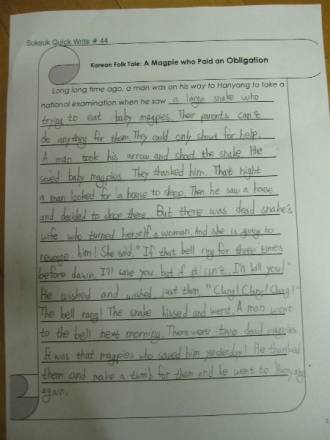 Suksuk Quick Write # 44
Korean Folk Tale: A Magpie who Paid an Obligation
Long long time ago, a man was on his way to Hanyang to take a
national examination when he saw a large snake who
trying to eat baby magpies. Their parents can't
do anything for them. They could only shout for help.
A man took his arrow and shoot the snake. He
saved baby magpies. They thanked him. That night
a man looked for a house to sleep. Then he saw a house
and decided to sleep there. But there was dead snake's
wife who turned herself a woman. And she is going to
revenge him! She said, "If that bell ring for three times
before dawn, I'll save you, but if it isn't, I'll kill you!"
He wished and wished just then, "Clang! Clang! Clang!"
The bell rang! The snake hissed and went. A man went
to the bell next morning. There were two dead magpies.
It was that magpies who saved him yesterday! He thanked
them and make a tumb for them and he went to Hanyang
again.